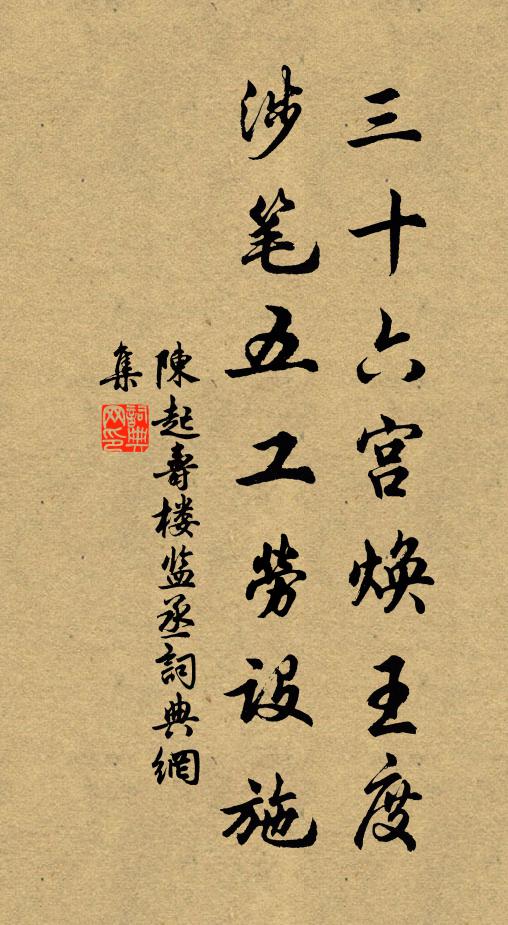 三十六宫焕王度
涉笔五工劳設施
陳起壽楼监丞詞典網
集
詞典網印